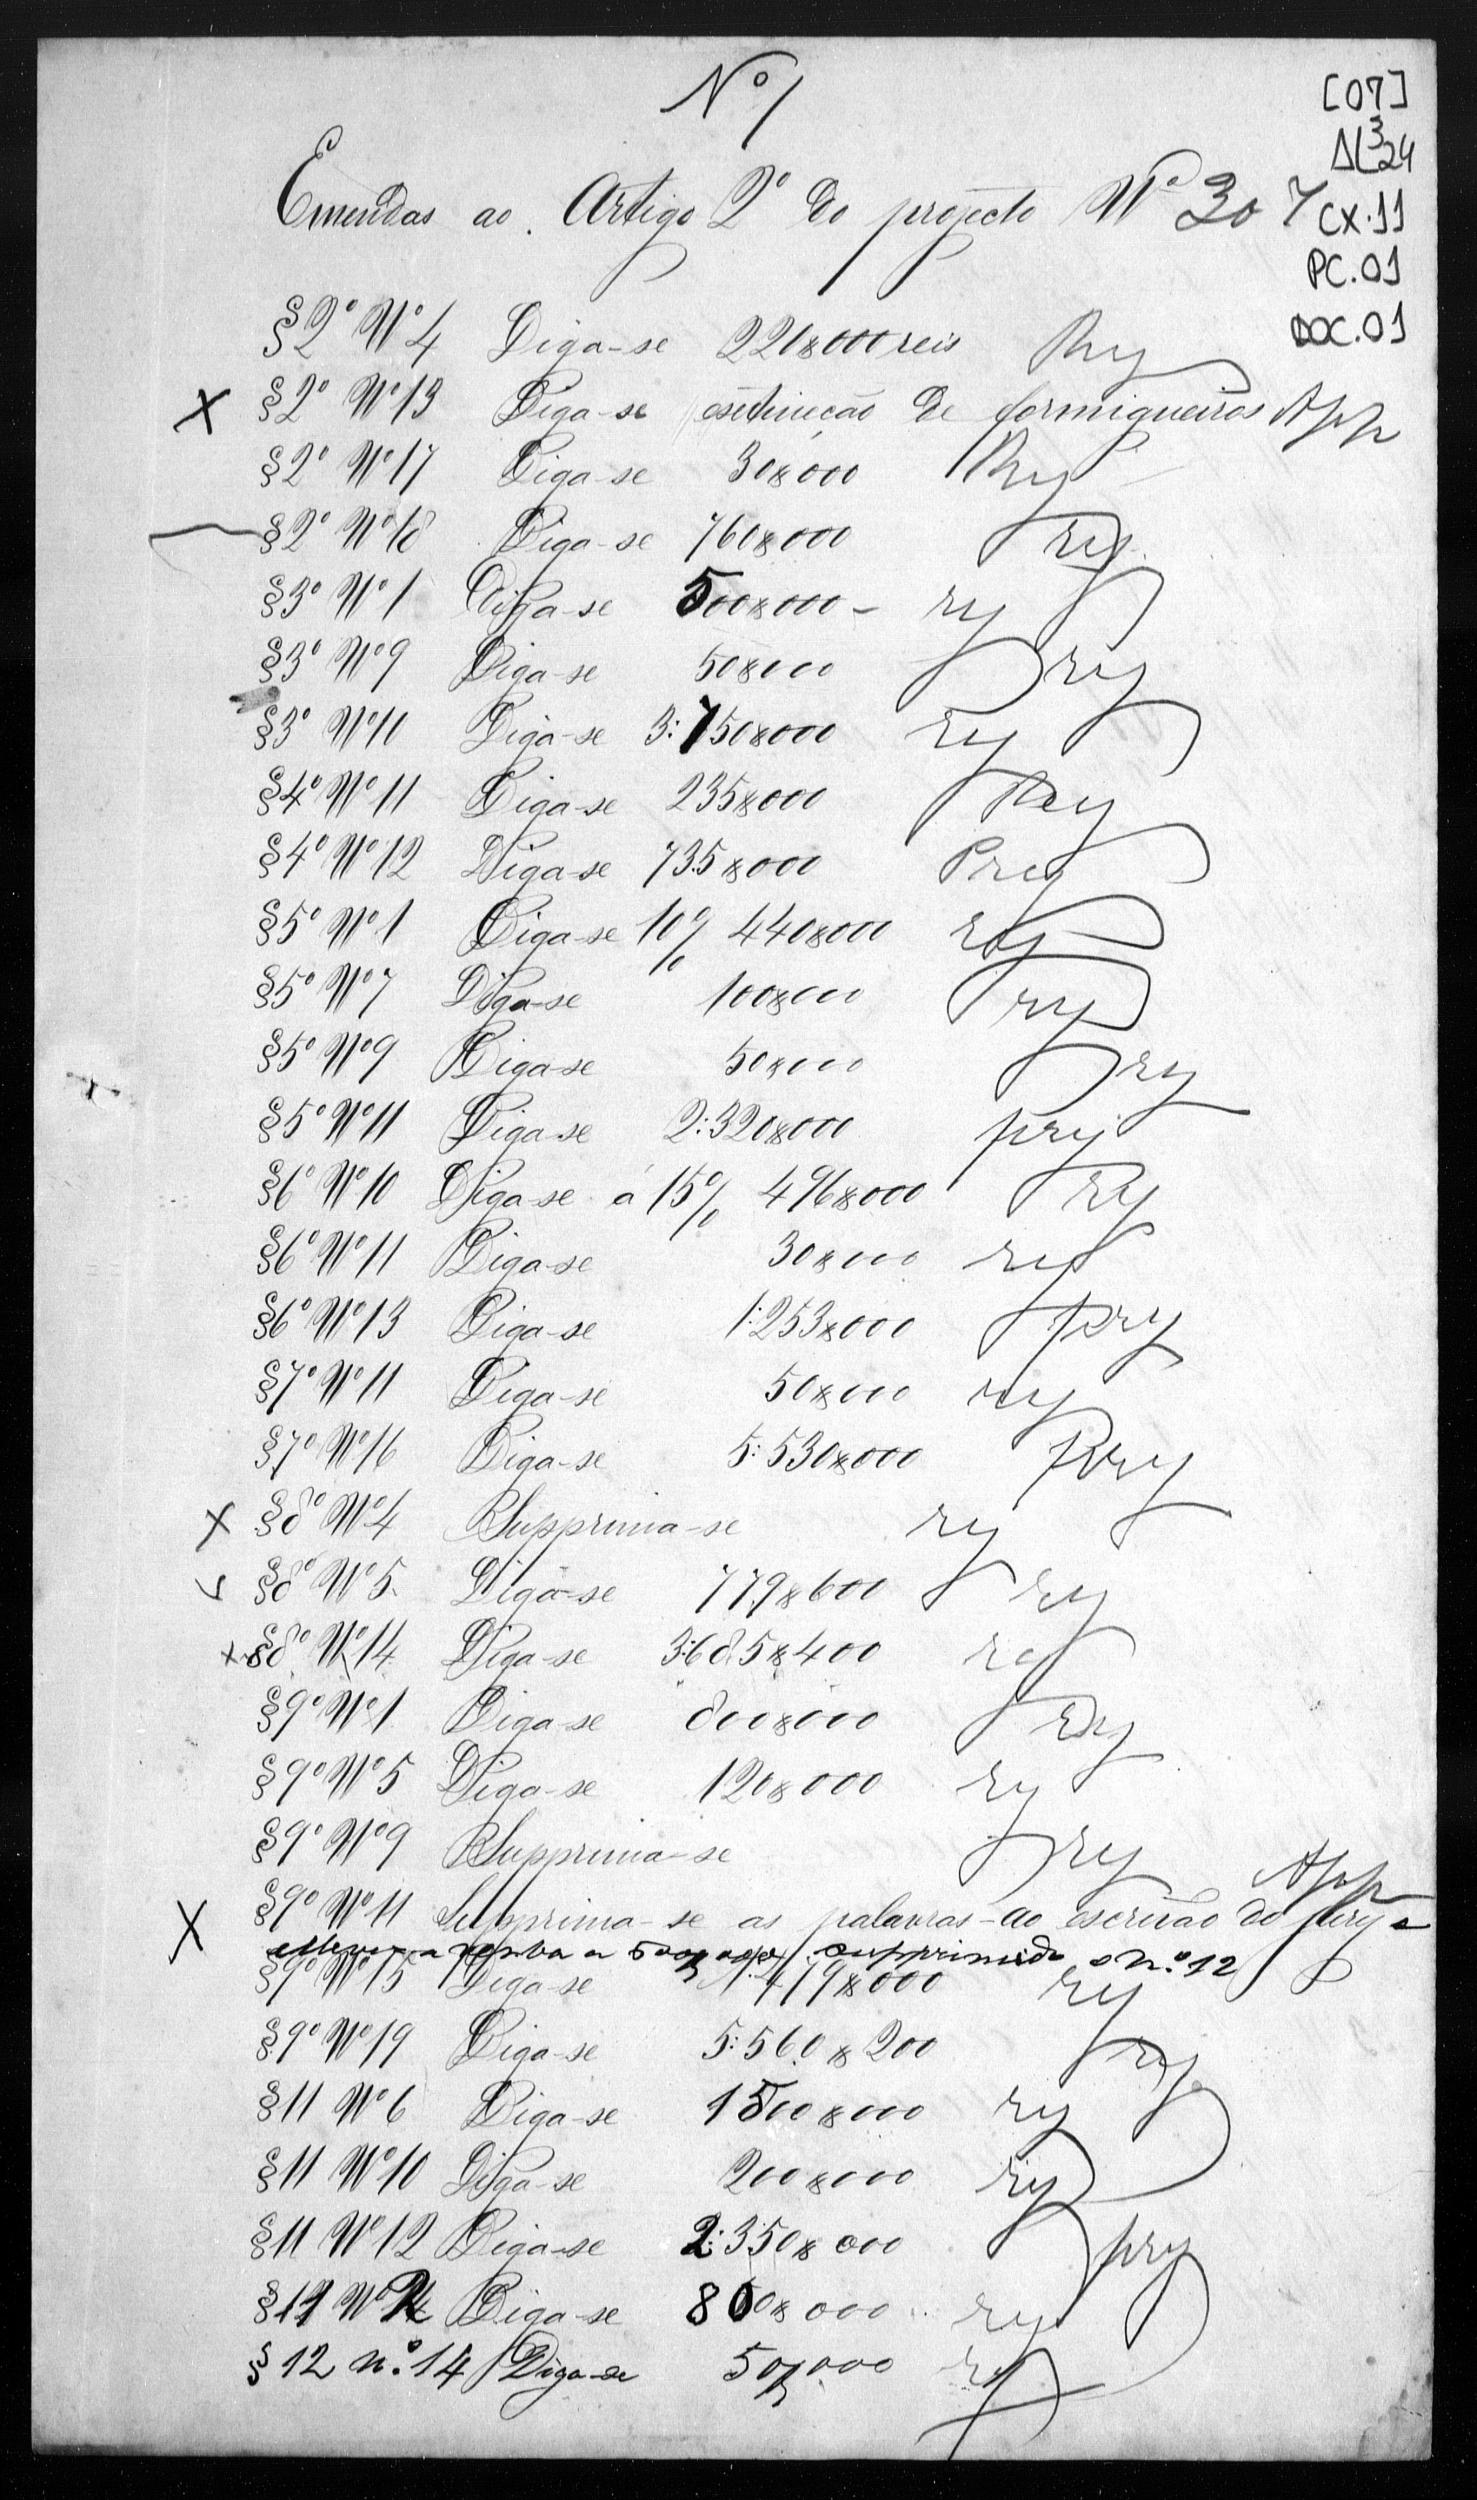 Nº 1
[07]
AL3.24
CX.11
PC.01
DOC.01
Emendas ao Artigo 2º do projecto Nº 307
§2º Nº 4 Diga-se 220$000 reis Rej
X §2º Nº 13 Diga-se extincção de formigueiros App
§2º Nº 17 Diga-se 30$000 Rej
§2º Nº 18 Diga-se 760$000 rej
§3º Nº 1 Diga-se 500$000 - rej
§3º Nº 9 Diga-se 50$000 rej
§3º Nº 10 Diga-se 3:750$000 rej
§4º Nº 11 Diga-se 235$000 Rej
§4º Nº 12 Diga-se 735$000 Prej
§5º Nº 1 Diga-se 10% 440$000 rej
§5º Nº 7 Diga-se 100$000 rej
§5º Nº 9 Diga-se 50$000 rej
§5º Nº 11 Diga-se 2:320$000 prej
§6º Nº 10 Diga-se á 15% 496$000 rej
§6º Nº 11 Diga-se 30$000 rej
§6º Nº 13 Diga-se 1:253$000 prej
§7º Nº 11 Diga-se 50$000 rej
§7º Nº 16 Diga-se 5:530$000 Prej
X §8º Nº 4 Supprima-se rej
§8º Nº 5 Diga-se 779$600 rej
x §8º Nº 14 Diga-se 3:685$400 rej
§9º Nº 1 Diga-se 800$000 rej
§9º Nº 5 Diga-se 120$000 rej
§9º Nº 9 Supprima-se rej
X §9º Nº 11 Supprima-se as palavras - ao escrivão do jury e App
elleve-se a verba a 500$000, supprimido o n.º 12
§9º Nº 15 Diga-se 1:479$000 rej
§9º Nº 19 Diga-se 5:560$200 rej
§11 Nº 6 Diga-se 1500$000 rej
§11 Nº 10 Diga-se 200$000 rej
§11 Nº 12 Diga-se 2:350$000 prej
§12 Nº Diga-se 800$000 rej
§12 n.º 14 Diga-se 50$000 rej